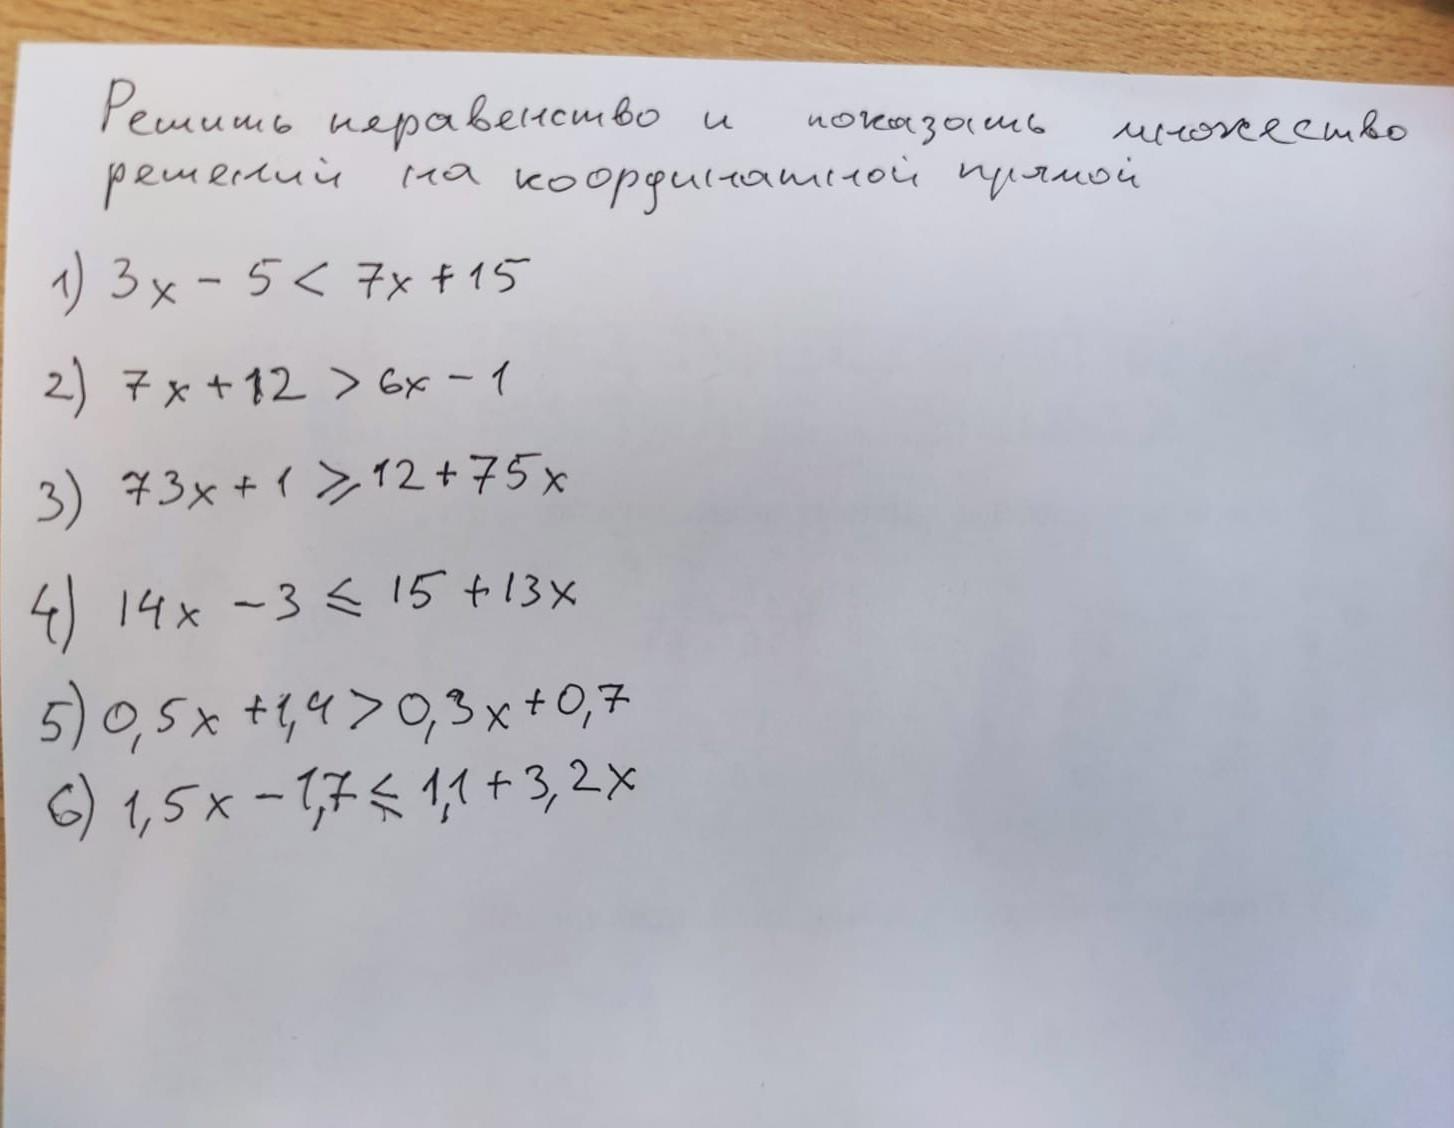 Решить неравенство и показать множество
решений на координатной прямой
1) 3x - 5 < 7x + 15
2) 7x + 12 > 6x - 1
3) 73x + 1 ⩾ 12 + 75x
4) 14x - 3 ⩽ 15 + 13x
5) 0,5x + 1,4 > 0,3x + 0,7
6) 1,5x - 1,7 ⩽ 1,1 + 3,2x